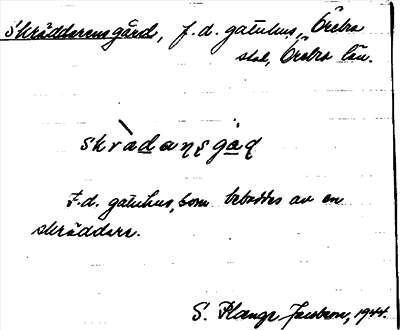 Skräddarens gård, f.d. gatuhus, Örebro
sbd, Örebro län.
skrädanşgäɖ
F.d. gatuhus, som beboddes av en
skräddare.
S. Plange Jacobson, 1944.